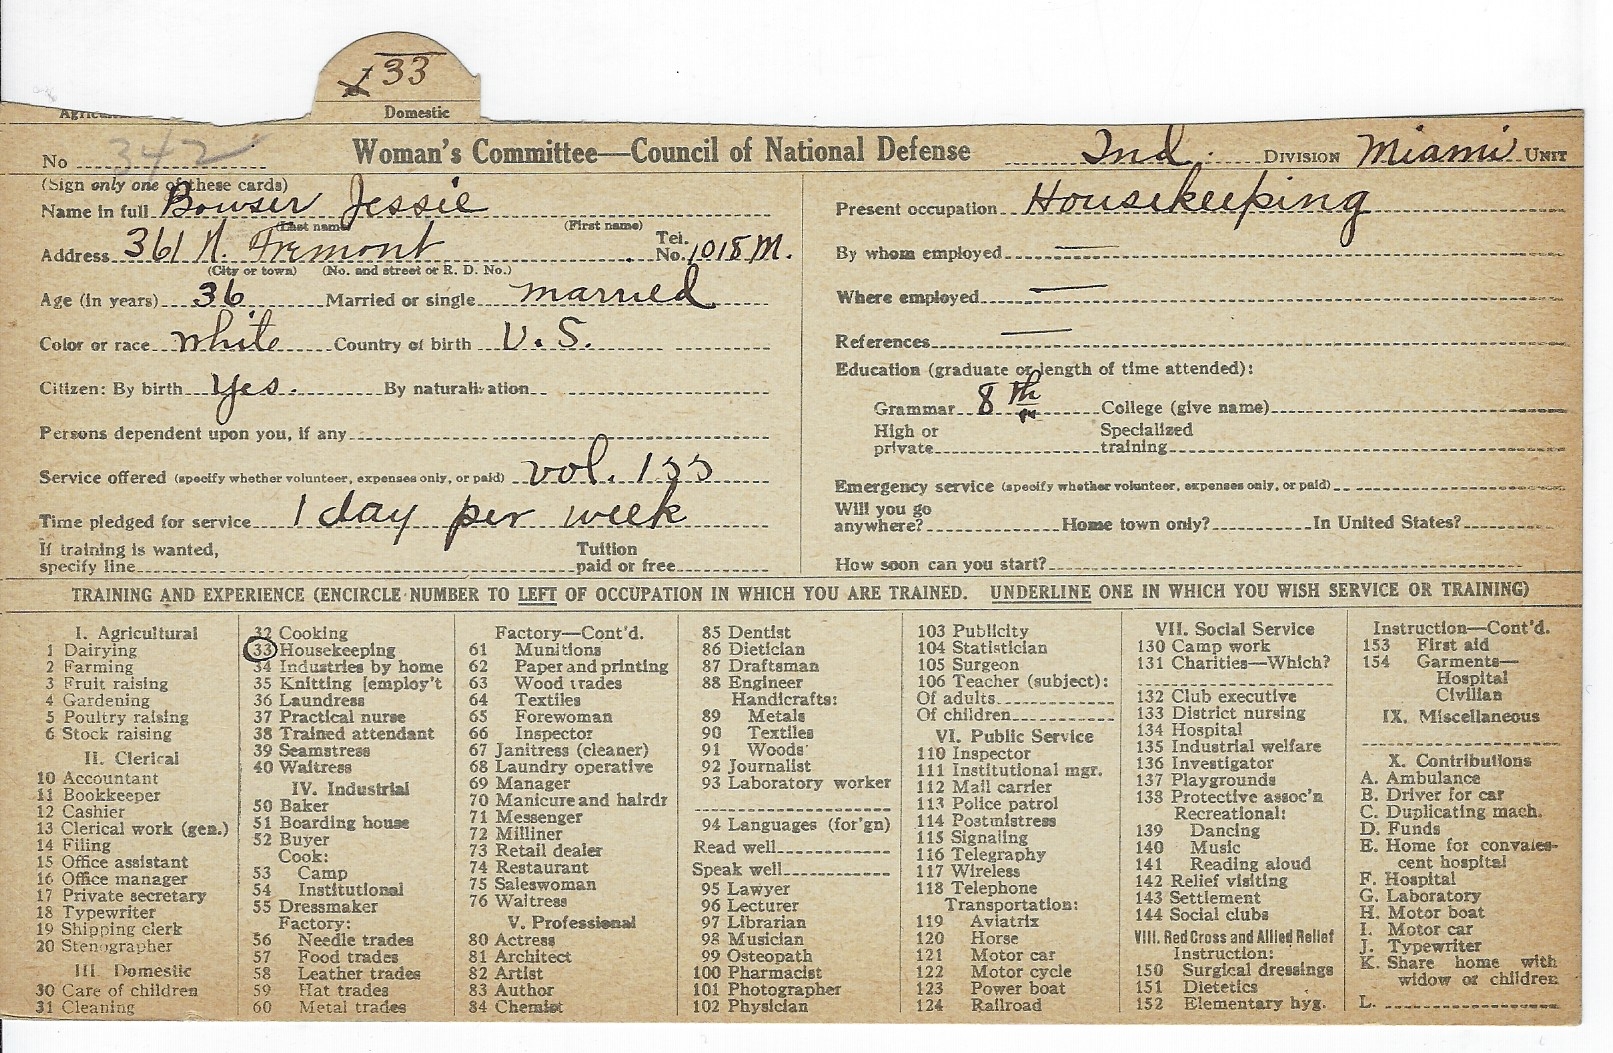 x 33
Domestic
No 342 Woman's Committee—Council of National Defense Ind. DIVISION Miami UNIT
(Sign only one of these cards)
Name in full Bowser Jessie
(Last name) (First name)
Address 361 N. Fremont Tel. No. 1018 M.
(City or town) (No. and street or R. D. No.)
Age (in years) 36 Married or single married
Color or race white Country of birth U. S.
Citizen: By birth yes. By naturalization
Persons dependent upon you, if any
Service offered (specify whether volunteer, expenses only, or paid) vol. 133
Time pledged for service 1 day per week
If training is wanted,
specify line
Tuition
paid or free
Present occupation Housekeeping
By whom employed —
Where employed —
References —
Education (graduate or length of time attended):
Grammar 8th College (give name)
High or
private
Specialized
training
Emergency service (specify whether volunteer, expenses only, or paid)
Will you go
anywhere? Home town only? In United States?
How soon can you start?
TRAINING AND EXPERIENCE (ENCIRCLE NUMBER TO LEFT OF OCCUPATION IN WHICH YOU ARE TRAINED. UNDERLINE ONE IN WHICH YOU WISH SERVICE OR TRAINING)
I. Agricultural
1 Dairying
2 Farming
3 Fruit raising
4 Gardening
5 Poultry raising
6 Stock raising
II. Clerical
10 Accountant
11 Bookkeeper
12 Cashier
13 Clerical work (gen.)
14 Filing
15 Office assistant
16 Office manager
17 Private secretary
18 Typewriter
19 Shipping clerk
20 Stenographer
III. Domestic
30 Care of children
31 Cleaning
32 Cooking
33 Housekeeping
34 Industries by home
35 Knitting [employ't
36 Laundress
37 Practical nurse
38 Trained attendant
39 Seamstress
40 Waitress
IV. Industrial
50 Baker
51 Boarding house
52 Buyer
Cook:
53 Camp
54 Institutional
55 Dressmaker
Factory:
56 Needle trades
57 Food trades
58 Leather trades
59 Hat trades
60 Metal trades
Factory—Cont'd.
61 Munitions
62 Paper and printing
63 Wood trades
64 Textiles
65 Forewoman
66 Inspector
67 Janitress (cleaner)
68 Laundry operative
69 Manager
70 Manicure and hairdr
71 Messenger
72 Milliner
73 Retail dealer
74 Restaurant
75 Saleswoman
76 Waitress
V. Professional
80 Actress
81 Architect
82 Artist
83 Author
84 Chemist
85 Dentist
86 Dietician
87 Draftsman
88 Engineer
Handicrafts:
89 Metals
90 Textiles
91 Woods
92 Journalist
93 Laboratory worker
94 Languages (for'gn)
Read well
Speak well
95 Lawyer
96 Lecturer
97 Librarian
98 Musician
99 Osteopath
100 Pharmacist
101 Photographer
102 Physician
103 Publicity
104 Statistician
105 Surgeon
106 Teacher (subject):
Of adults
Of children
VI. Public Service
110 Inspector
111 Institutional mgr.
112 Mail carrier
113 Police patrol
114 Postmistress
115 Signaling
116 Telegraphy
117 Wireless
118 Telephone
Transportation:
119 Aviatrix
120 Horse
121 Motor car
122 Motor cycle
123 Power boat
124 Railroad
VII. Social Service
130 Camp work
131 Charities—Which?
132 Club executive
133 District nursing
134 Hospital
135 Industrial welfare
136 Investigator
137 Playgrounds
138 Protective assoc'n
Recreational:
139 Dancing
140 Music
141 Reading aloud
142 Relief visiting
143 Settlement
144 Social clubs
VIII. Red Cross and Allied Relief
Instruction:
150 Surgical dressings
151 Dietetics
152 Elementary hyg.
Instruction—Cont'd.
153 First aid
154 Garments—
Hospital
Civilian
IX. Miscellaneous
X. Contributions
A. Ambulance
B. Driver for car
C. Duplicating mach.
D. Funds
E. Home for convales-
cent hospital
F. Hospital
G. Laboratory
H. Motor boat
I. Motor car
J. Typewriter
K. Share home with
widow or children
L.